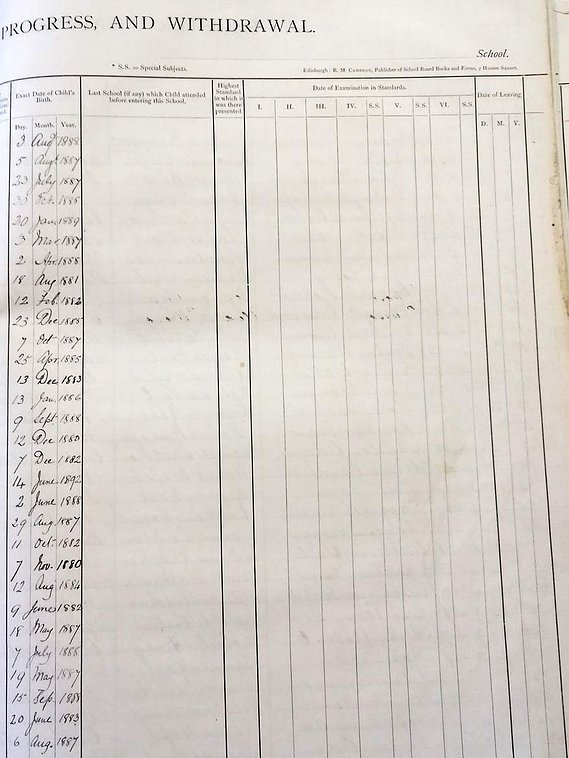 PROGRESS, AND WITHDRAWAL.
School.
* S.S. = Special Subjects.
Edinburgh: R. M. Cameron, Publisher of School Board Books and Forms, 7 Hanover Square.
Exact Date of Child's Birth.
Last School (if any) which Child attended before entering this School.
Highest Standard in which it was there presented.
Date of Examination in Standards.
Date of Leaving.
I. II. III. IV. S.S. V. S.S. VI. S.S.
Day. Month. Year. D. M. Y.
3 Aug 1888
5 Aug 1887
23 July 1887
Feb. 1885
20 Jan. 1889
3 Mar. 1887
2 Apr. 1888
18 Aug 1881
12 Feb. 1882
23 Dec 1885
7 Oct 1887
25 Apr. 1885
13 Dec 1883
13 Jan. 1886
9 Sept 1888
12 Dec 1880
7 Dec 1882
14 June 1892
2 June 1888
29 Aug. 1887
11 Oct. 1882
7 Nov. 1880
12 Aug 1884
9 June 1882
18 May 1887
7 July 1888
19 May 1887
15 Sep. 1888
20 June 1883
6 Aug. 1887